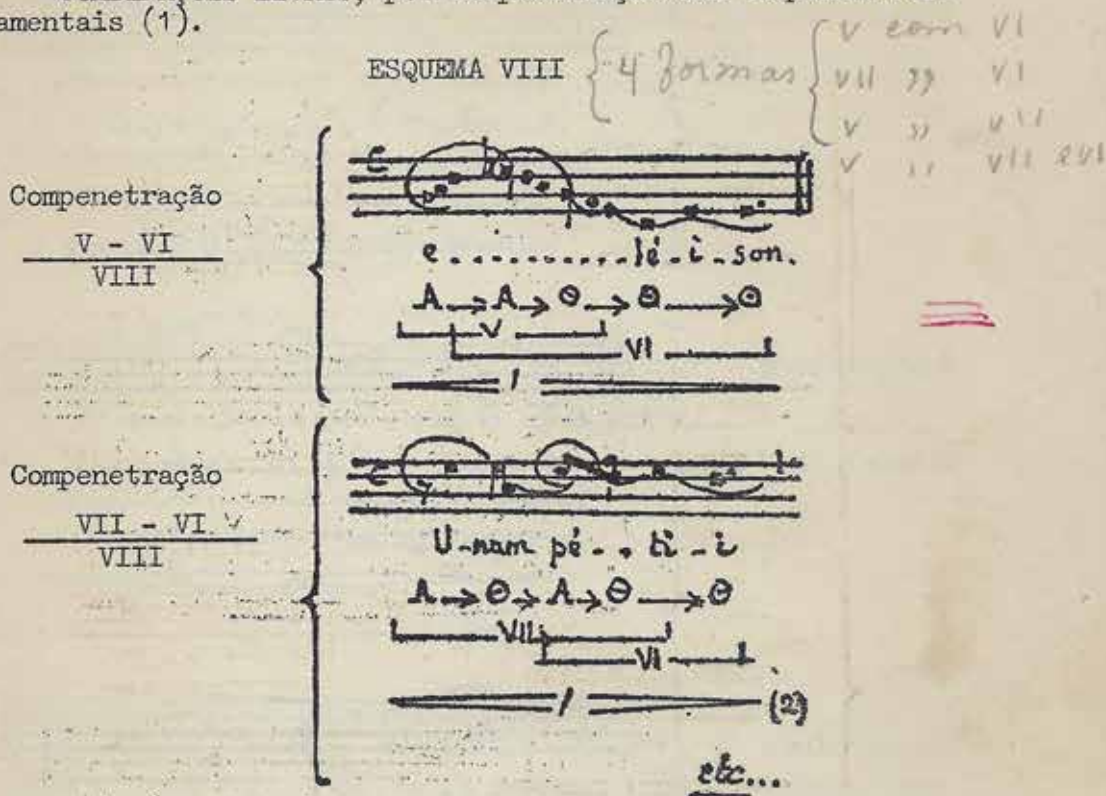 amentais (1).
ESQUEMA VIII { 4 formas { V com VI
VII ,, VI
V ,, VII
V ,, VII e VI
Compenetração
V - VI
VIII
e............lé-i-son.
A → A → Θ → Θ → Θ
V
VI
Compenetração
VII - VI V
VIII
U-nam pé-.ti-i
A → Θ → A → Θ → Θ
VII
VI
(2)
etc...